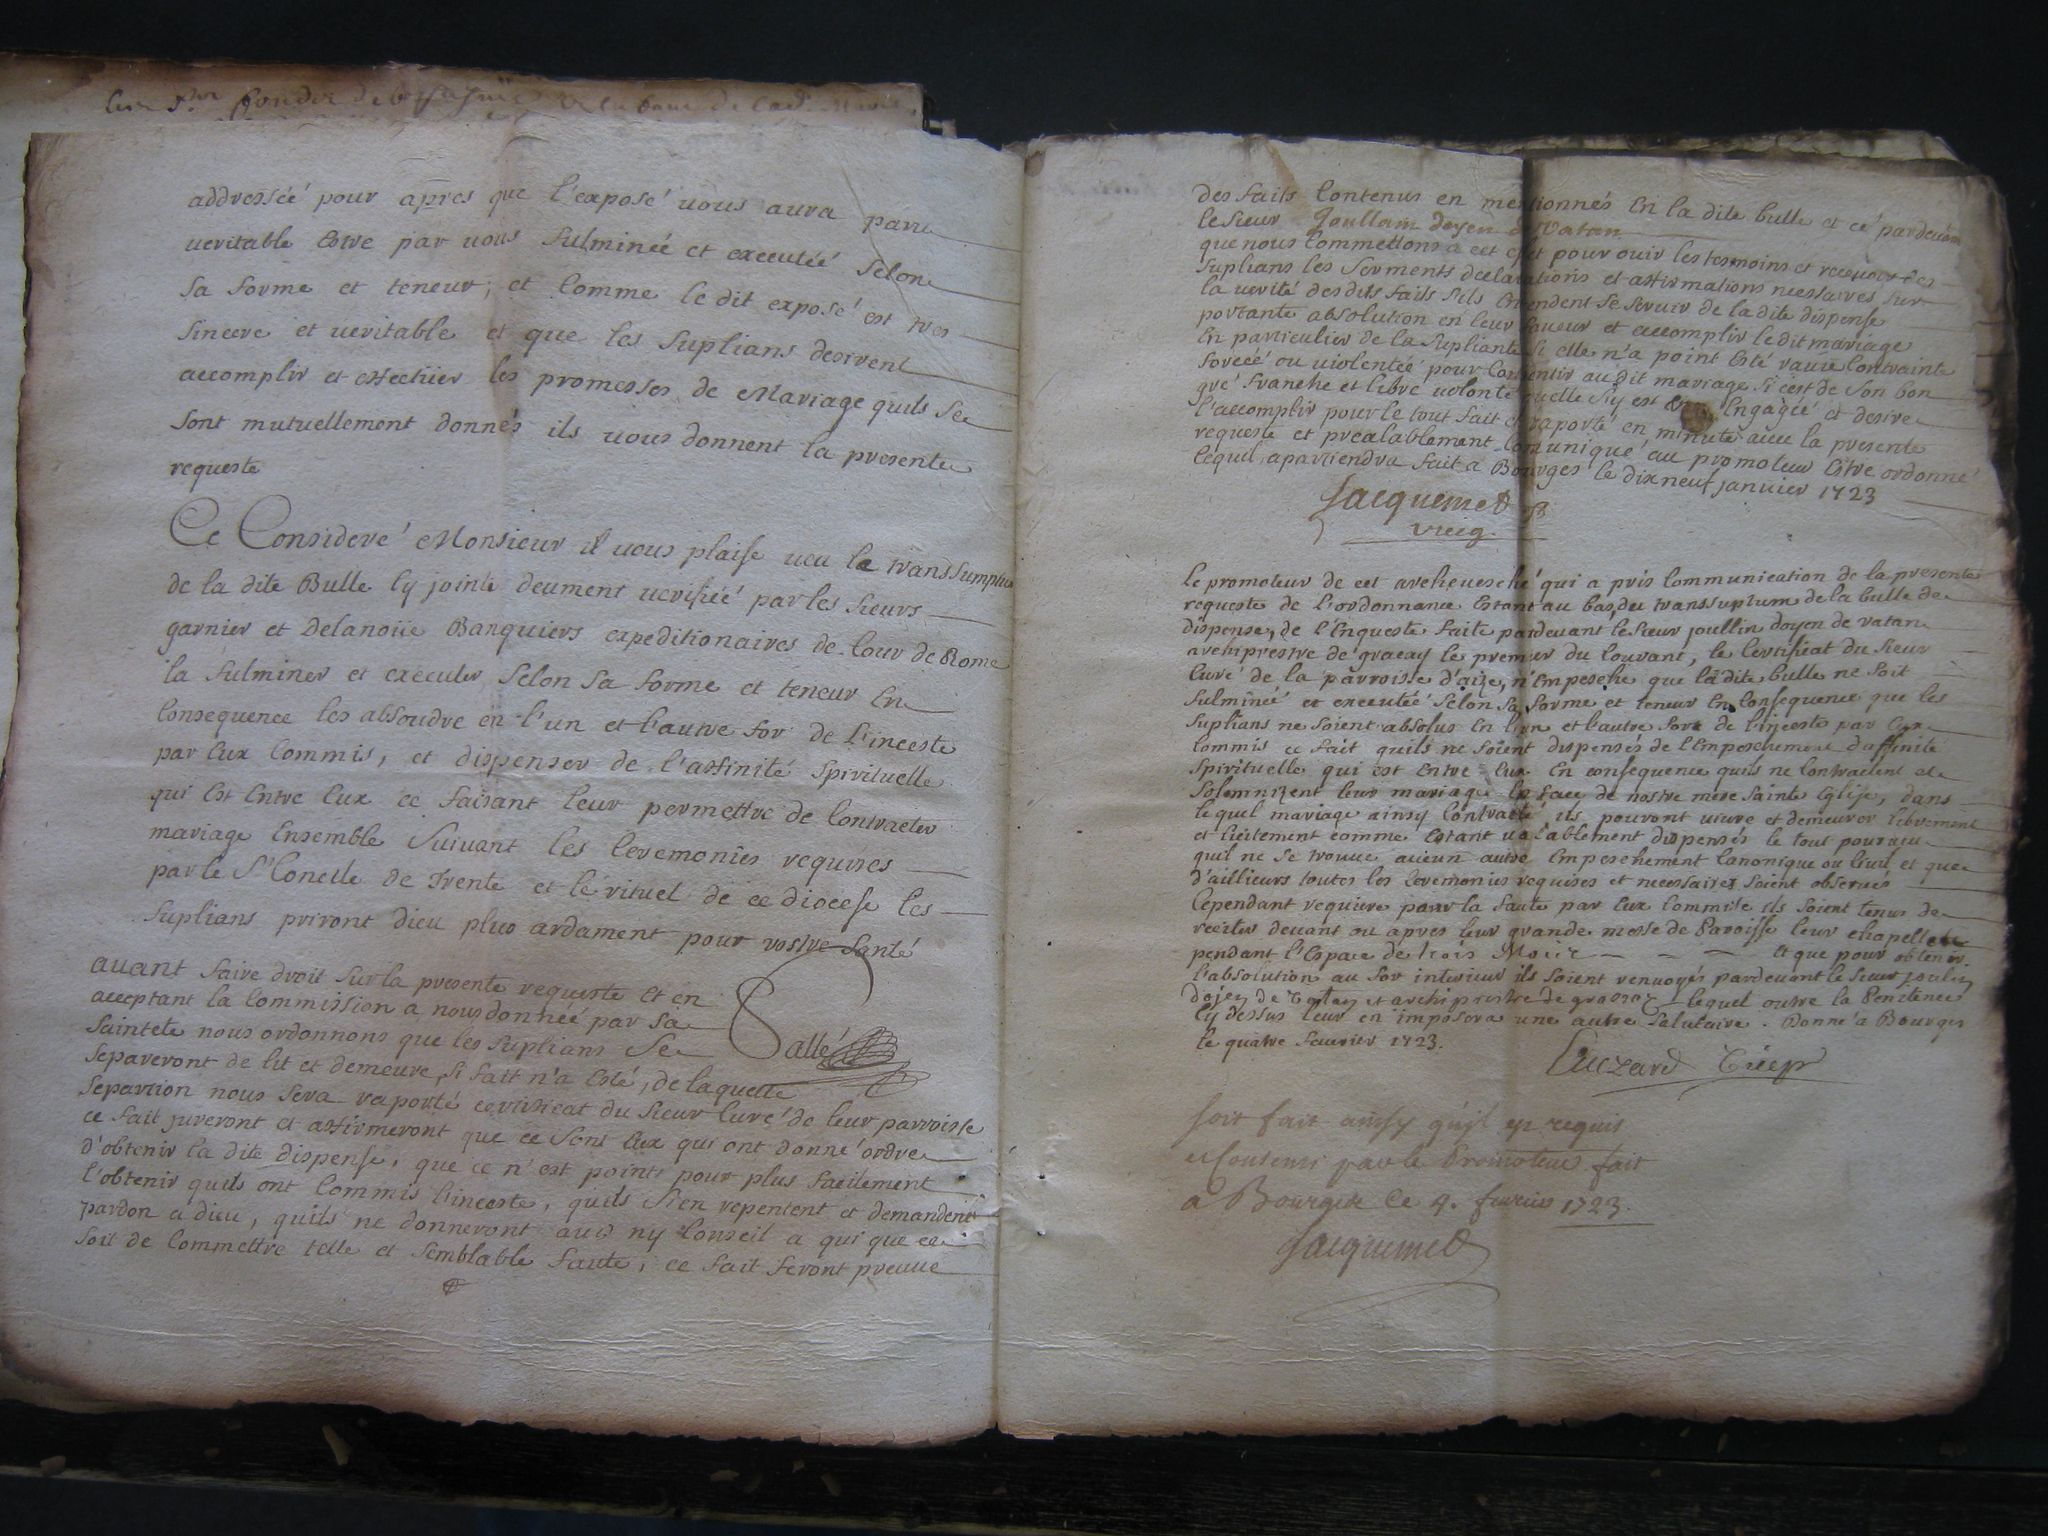 addressée pour apres que l'exposé vous aura paru
veritable estre par vous fulminée et executée selon
sa forme et teneur, et comme le dit exposé est tres
sincere et veritable et que les suplians desirent
accomplir et effectüer les promesses de Mariage quils se
sont mutuellement donnés ils vous donnent la presente
requeste
Ce Consideré Monsieur il vous plaise veu le transsumptum
de la dite Bulle cy jointe deument verifiée par les sieurs
garnier et Delanoüe Banquiers expeditionaires de Cour de Rome
la fulminer et executer selon sa forme et teneur En
Consequence les absoudre en l'un et l'autre for de L'inceste
par Eux Commis, et dispenser de l'affinité spirituelle
qui Est Entre Eux ce faisant leur permettre de Contracter
mariage Ensemble suivant les Ceremonies requises
par le St Concille de Trente et le rituel de ce diocese les
suplians priront dieu plus ardament pour vostre santé
Sallé
avant faire droit sur la presente requeste Et en
acceptant la Commission a nous donnée par sa
sainteté nous ordonnons que les suplians se
separeront de lit et demeure, si fait n'a Esté, de laquelle
separtion nous sera raporté certificat du sieur Curé de leur parroisse
ce fait jureront et affirmeront que ce sont Eux qui ont donné ordre
d'obtenir la dite dispense, que ce n'est point pour plus facilement
l'obtenir quils ont Commis l'inceste, quils s'en repentent et demandent
pardon a dieu, quils ne donneront avis ny Conseil a qui que ce
soit de Commettre telle et semblable faute, ce fait feront preuve
des faits Contenus en mentionnés En la dite bulle et ce pardevant
le sieur Joullain doyen de Vatan
que nous Commettons a cet effet pour ouir les tesmoins et recevoir des
suplians les serments declarations et affirmations necessaires sur
la verité des dits faits s'ils Entendent se servir de la dite dispense
portante absolution en leur faveur et accomplir le dit mariage
En particulier de la supliante si elle n'a point Esté ravie Contrainte
forcée ou violentée pour Consentir au dit mariage si c'est de son bon
gré franche et libre volonté quelle s'y est Engagée et desire
l'accomplir pour le tout fait et raporté en minute avec la presente
requeste et prealablement Comuniqué au promoteur Estre ordonné
cequil apartiendra fait a Bourges le dix neuf janvier 1723
Jacquemet
viceg.
le promoteur de cet archevesché qui a pris Communication de la presente
requeste de l'ordonnance Estant au bas, du transsuptum de la bulle de
dispense, de l'Enqueste faite pardevant le sieur joullin doyen de vatan
archiprestre de gracay le premier du Courant, le Certificat du sieur
Curé de la parroisse d'aize, n'Empesche que la dite bulle ne soit
fulminée et executée selon sa forme et teneur En Consequence que les
suplians ne soient absolus En l'un et l'autre fore de l'inceste par Eux
Commis ce fait quils ne soient dispensés de l'Empeschement d'affinité
spirituelle qui est Entre Eux En consequence quils ne Contractent et
solemnizent leur mariage En face de nostre mere sainte Eglise, dans
lequel mariage ainsy Contracté ils pouront vivre et demeurer librement
et licitement comme Estant valablement dispensés le tout pourveu
quil ne se trouve aucun autre Empeschement Canonique ou Civil et que
d'ailleurs toutes les Ceremonies requises et necessaires soient observés
Cependant requiere pour la faute par Eux Commise ils soient tenus de
reciter devant ou apres leur grande messe de Paroisse leur chapellet
pendant l'Espace de trois Mois — — — et que pour obtenir
l'absolution au for interieur ils soient renvoyés pardevant le sieur joulin
Dojen de Vatan et archiprestre de grassay lequel outre la Penitence
Cy dessus leur en imposera une autre salutaire. Donné a Bourges
le quatre fevrier 1723.
soit fait ainsy qu'il est requis
et Consenti par le Promoteur fait
a Bourges Ce 4. fevrier 1723.
Jacquemet